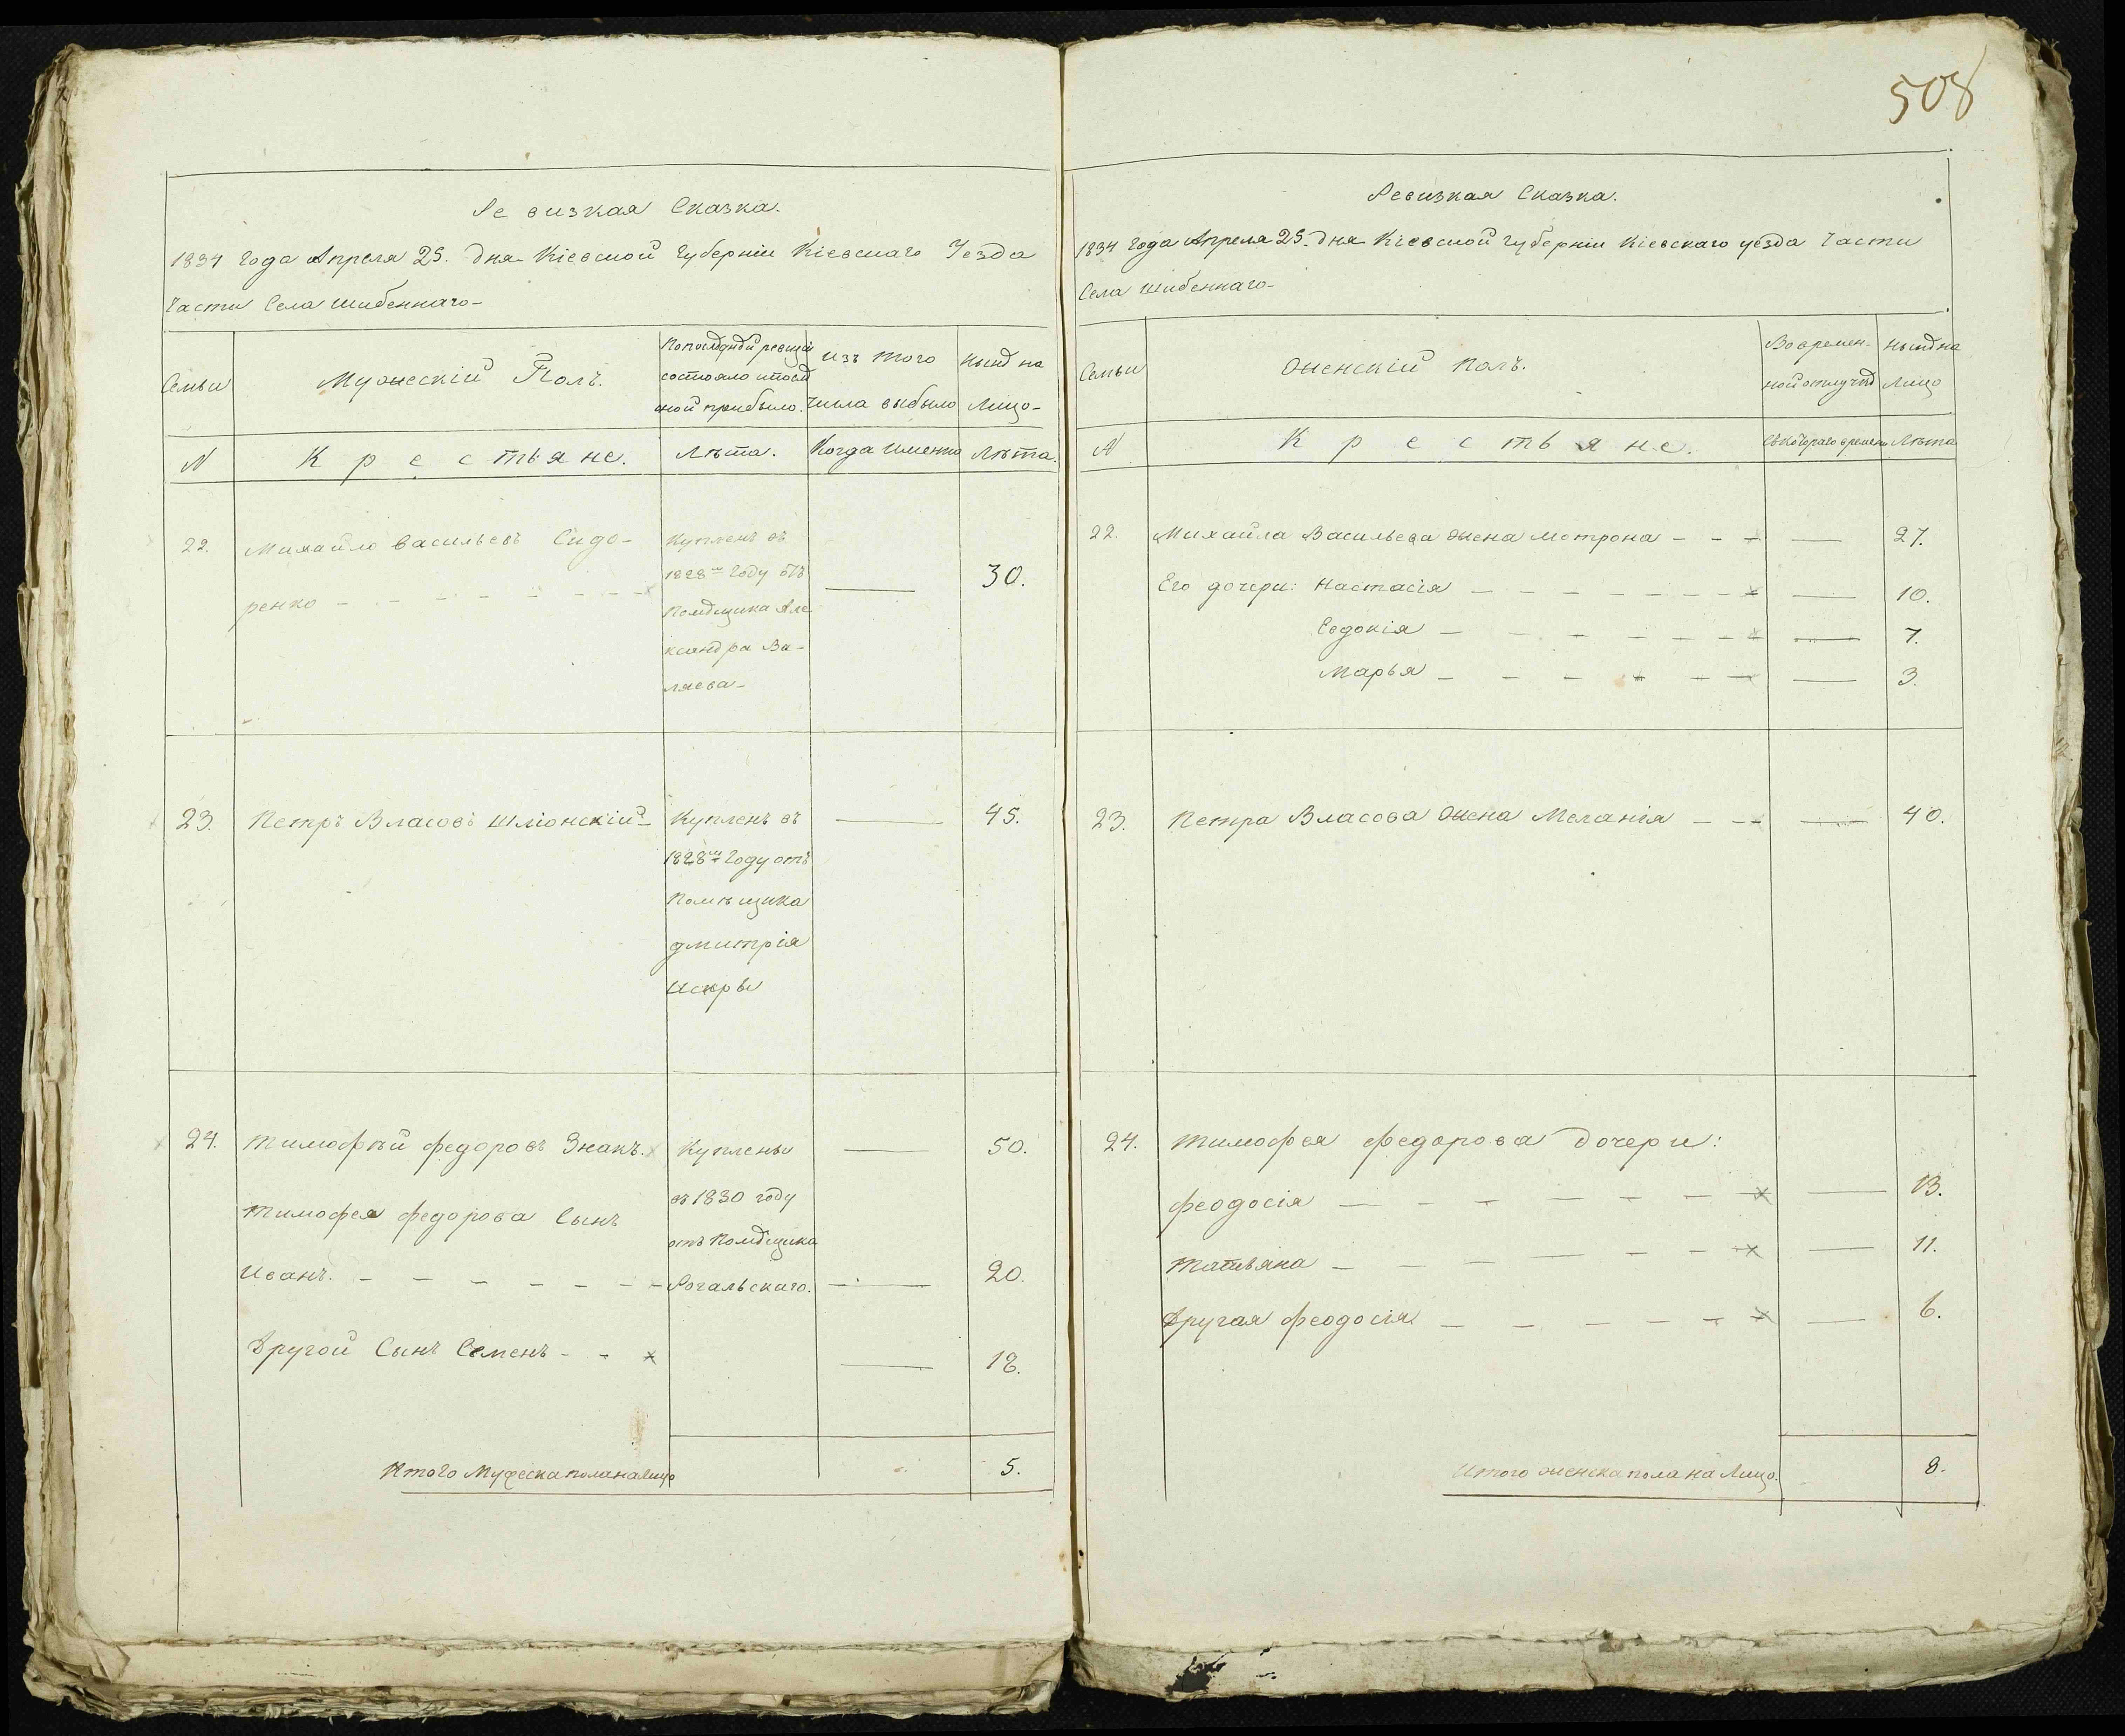 Ревизкая Сказка.
1834 Года Апреля 25. дня Кіевской Губерніи Кіевскаго Уезда
Части Села Шибеннаго-
Семьи
Мужескій Полъ.
По последней ревизіи
состояло и после
оной прибыло.
Изъ того
Числа выбыло
Ныне на
Лицо-
N
Крестьяне.
Лета.
Когда именно
Лета.
22.
Михайло Васильевъ Сидо-
ренко
Купленъ въ
1828м Году отъ
Помещика Але
ксандра Ва-
ляева-
30.
23.
Петръ Власовъ Шліонскій
Купленъ въ
1828м Году отъ
Помещика
Дмитрія
Искры
45.
24.
Тимофей Федоровъ Знакъ.
Купленъ
въ 1830 году
отъ Помещика
Рогальскаго.
50.
Тимофея Федорова Сынъ
Иванъ.
20.
Другой Сынъ Семенъ
18.
Итого Мужеска пола на лицо
5.
508
Ревизкая Сказка.
1834 Года Апреля 25. дня Кіевской Губерніи Кіевскаго уезда Части
Села Шибеннаго-
Семьи
Женскій Полъ.
Во времен-
ной отлучке
Ныне на
Лицо
N
Крестьяне.
Съ котораго времени
Лета
22.
Михайла Васильева жена Мотрона
27.
Его дочери: Настасія
10.
Евдокія
7.
Марья
3.
23.
Петра Власова жена Меланія
40.
24.
Тимофея Федорова дочери:
Феодосія
13.
Татьяна
11.
Другая Феодосія
6.
Итого женска пола на Лицо.
8.